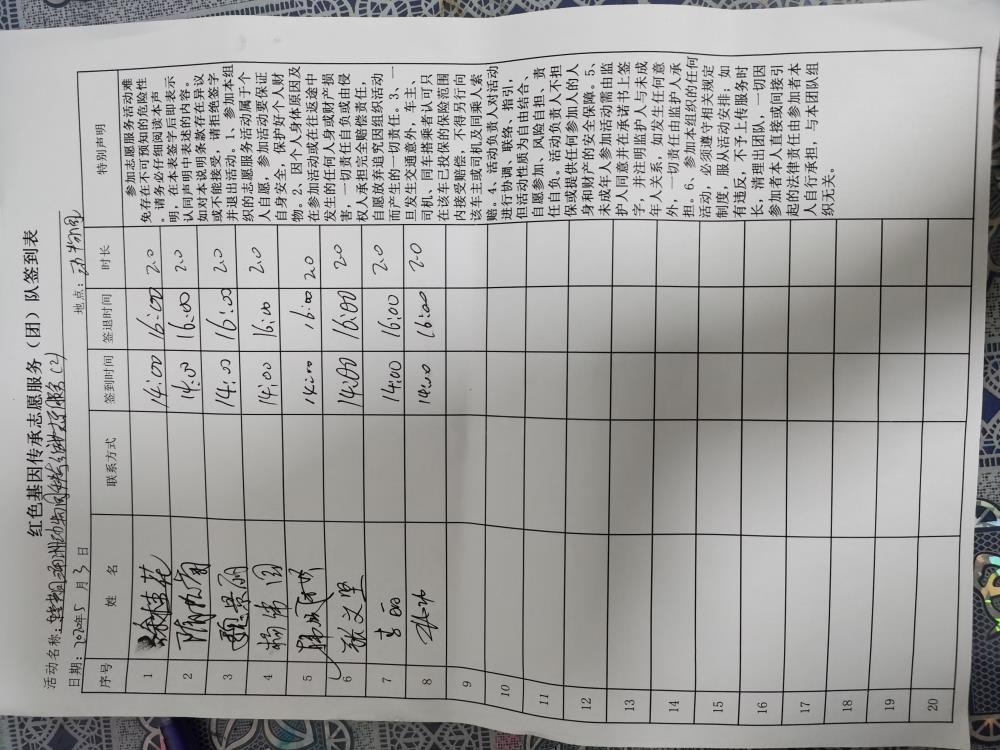 红色基因传承志愿服务（团）队签到表
活动名称：
日期：2020年5月3日 地点：动物园
序号 姓 名 联系方式 签到时间 签退时间 时长 特别声明
1 徐桂花 14:00 16:00 2.0
2 14:00 16:00 2.0
3 魏景丽 14:00 16:00 2.0
4 杨伟国 14:00 16:00 2.0
5 14:00 16:00 2.0
6 张文坚 14:00 16:00 2.0
7 14:00 16:00 2.0
8 14:00 16:00 2.0
9
10
11
12
13
14
15
16
17
18
19
20
参加志愿服务活动难
免存在不可预知的危险性
。请务必仔细阅读本声
明，在本表签字后即表示
认同声明中表述的内容。
如对本说明条款存在异议
或不能接受，请拒绝签字
并退出活动。1、参加本组
织的志愿服务活动属于个
人自愿，参加活动要保证
自身安全，保护好个人财
物。2、因个人身体原因及
在参加活动或在往返途中
发生的任何人身或财产损
害，一切责任自负或由侵
权人承担完全赔偿责任，
自愿放弃追究因组织活动
而产生的一切责任。3、一
旦发生交通意外，车主、
司机、同车搭乘者认可只
在该车已投保的保险范围
内接受赔偿，不得另行向
该车主或司机及同乘人索
赔。4、活动负责人对活动
进行协调、联络、指引，
但活动性质为自由结合、
自愿参加、风险自担、责
任自负。活动负责人不担
保或提供任何参加人的人
身和财产的安全保障。5、
未成年人参加活动需由监
护人同意并在承诺书上签
字，并注明监护人与未成
年人关系，如发生任何意
外，一切责任由监护人承
担。6、参加本组织的任何
活动，必须遵守相关规定
制度，服从活动安排；如
有违反，不予上传服务时
长，清理出团队，一切因
参加者本人直接或间接引
起的法律责任由参加者本
人自行承担，与本团队组
织无关。